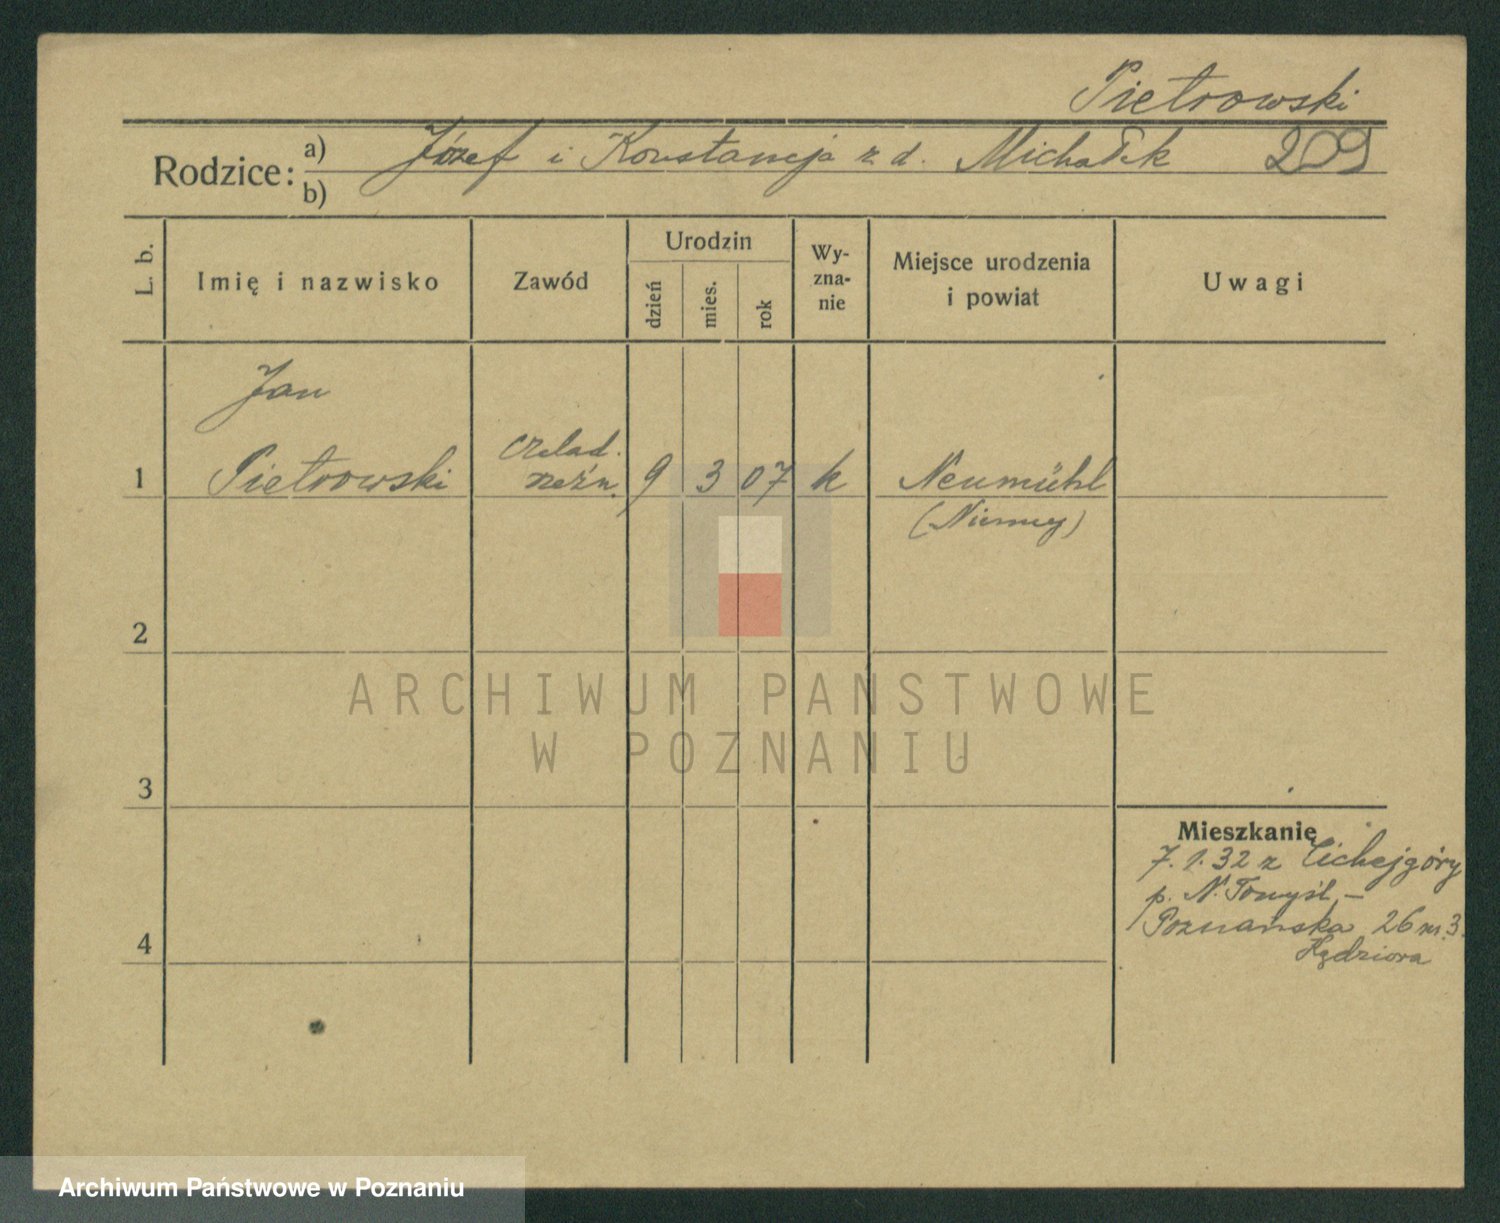 Pietrowski
Rodzice: a) Józef i Konstancja z d. Michałek 209
b)
L. b.
Imię i nazwisko
Zawód
Urodzin
dzień
mies.
rok
Wy-
zna-
nie
Miejsce urodzenia
i powiat
Uwagi
Jan
1 Pietrowski czelad. rzeźn. 9 3 07 k Neumühl
(Niemcy)
2
3
4
Mieszkanie
7.1.32 z Cichejgóry
p. N. Tomyśl –
Poznańska 26 m. 3.
Kędziora
ARCHIWUM PAŃSTWOWE
W POZNANIU
Archiwum Państwowe w Poznaniu